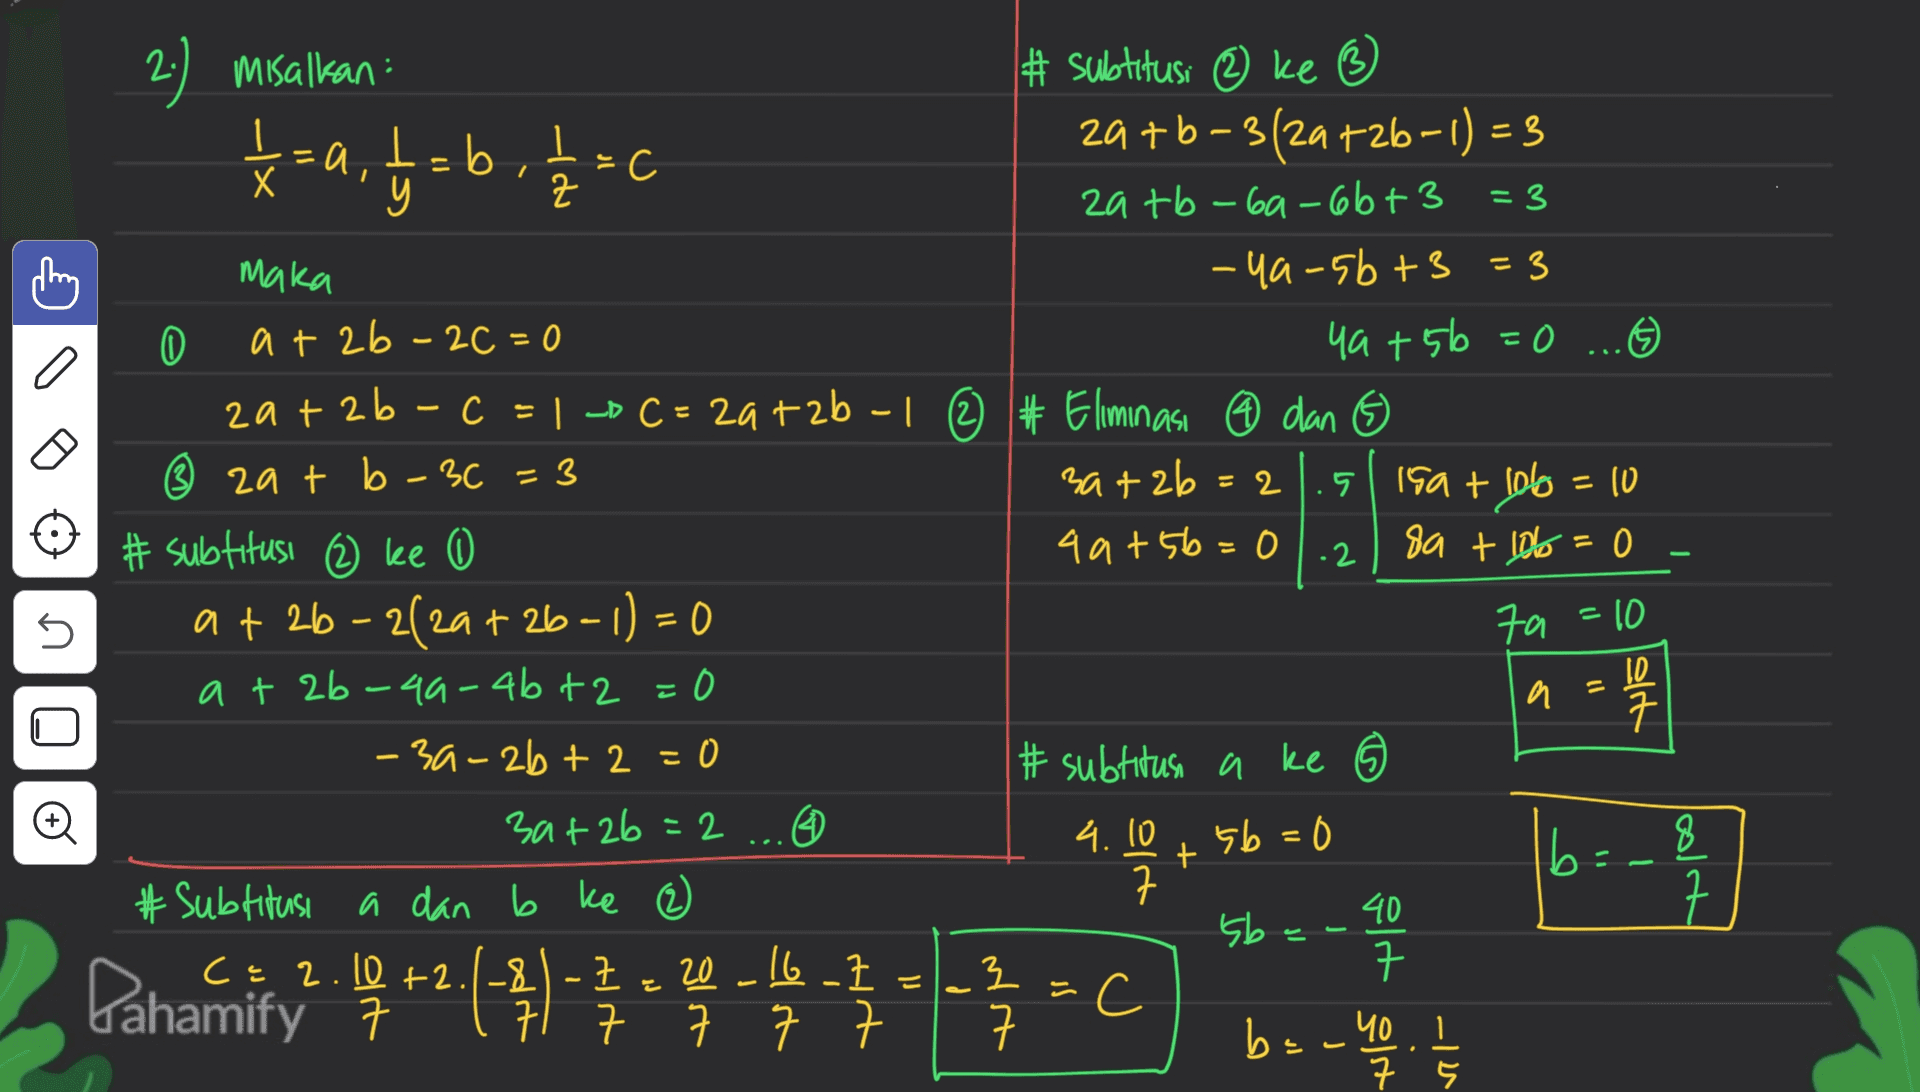 2.) misalkan:
1/x = a, 1/y = b, 1/z = c
Maka
① a + 2b - 2c = 0
2a + 2b - c = 1 → c = 2a + 2b - 1 ②
③ 2a + b - 3c = 3
# subtitusi ② ke ①
a + 2b - 2(2a + 2b - 1) = 0
a + 2b - 4a - 4b + 2 = 0
-3a - 2b + 2 = 0
3a + 2b = 2 ... ④
# subtitusi ② ke ③
2a + b - 3(2a + 2b - 1) = 3
2a + b - 6a - 6b + 3 = 3
-4a - 5b + 3 = 3
4a + 5b = 0 ... ⑤
# Eliminasi ④ dan ⑤
3a + 2b = 2 | .5 | 15a + 10b = 10
4a + 5b = 0 | .2 | 8a + 10b = 0 -
7a = 10
a = 10/7
# subtitusi a ke ⑤
4. 10/7 + 5b = 0
5b = - 40/7
b = - 40/7 . 1/5
b = - 8/7
# Subtitusi a dan b ke ②
c = 2. 10/7 + 2. (-8/7) - 7/7 = 20/7 - 16/7 - 7/7 = - 3/7 = C
Pahamify